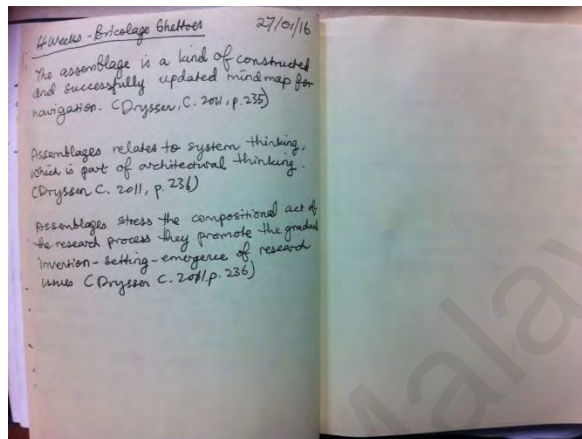 4 Weeks - Bricolage Ghettoes 27/01/16
The assemblage is a kind of constructed
and successfully updated mindmap for
navigation. (Drysser, C. 2011, p. 235)
Assemblages relates to system thinking,
which is part of architectural thinking.
(Dryssen C. 2011, p. 236)
Assemblages stress the compositional act of
the research process they promote the gradual
invention-setting-emergence of research
issues (Dryssen C. 2011.p. 236)
Malay